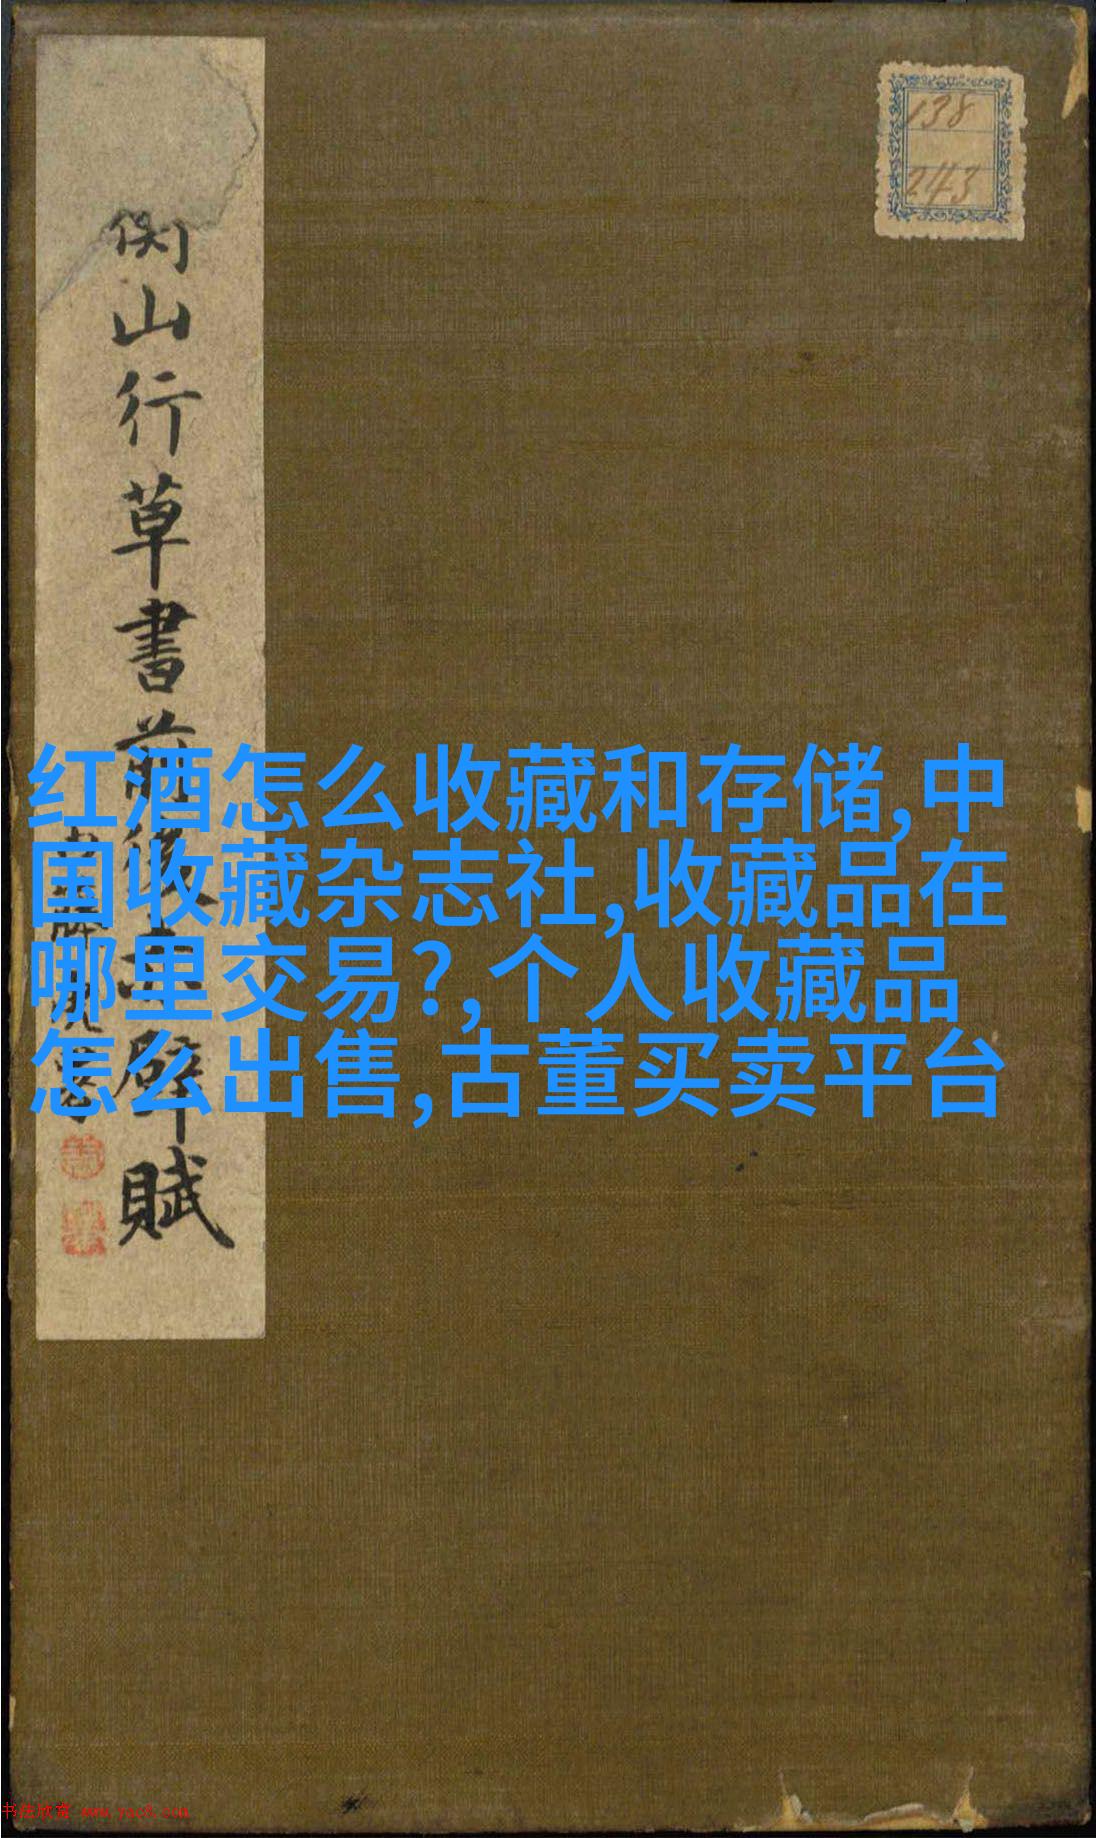 138
243
衡山行草書前後赤壁賦
红酒怎么收藏和存储,中
国收藏杂志社,收藏品在
哪里交易?,个人收藏品
怎么出售,古董买卖平台
书法欣赏 www.yac8.com